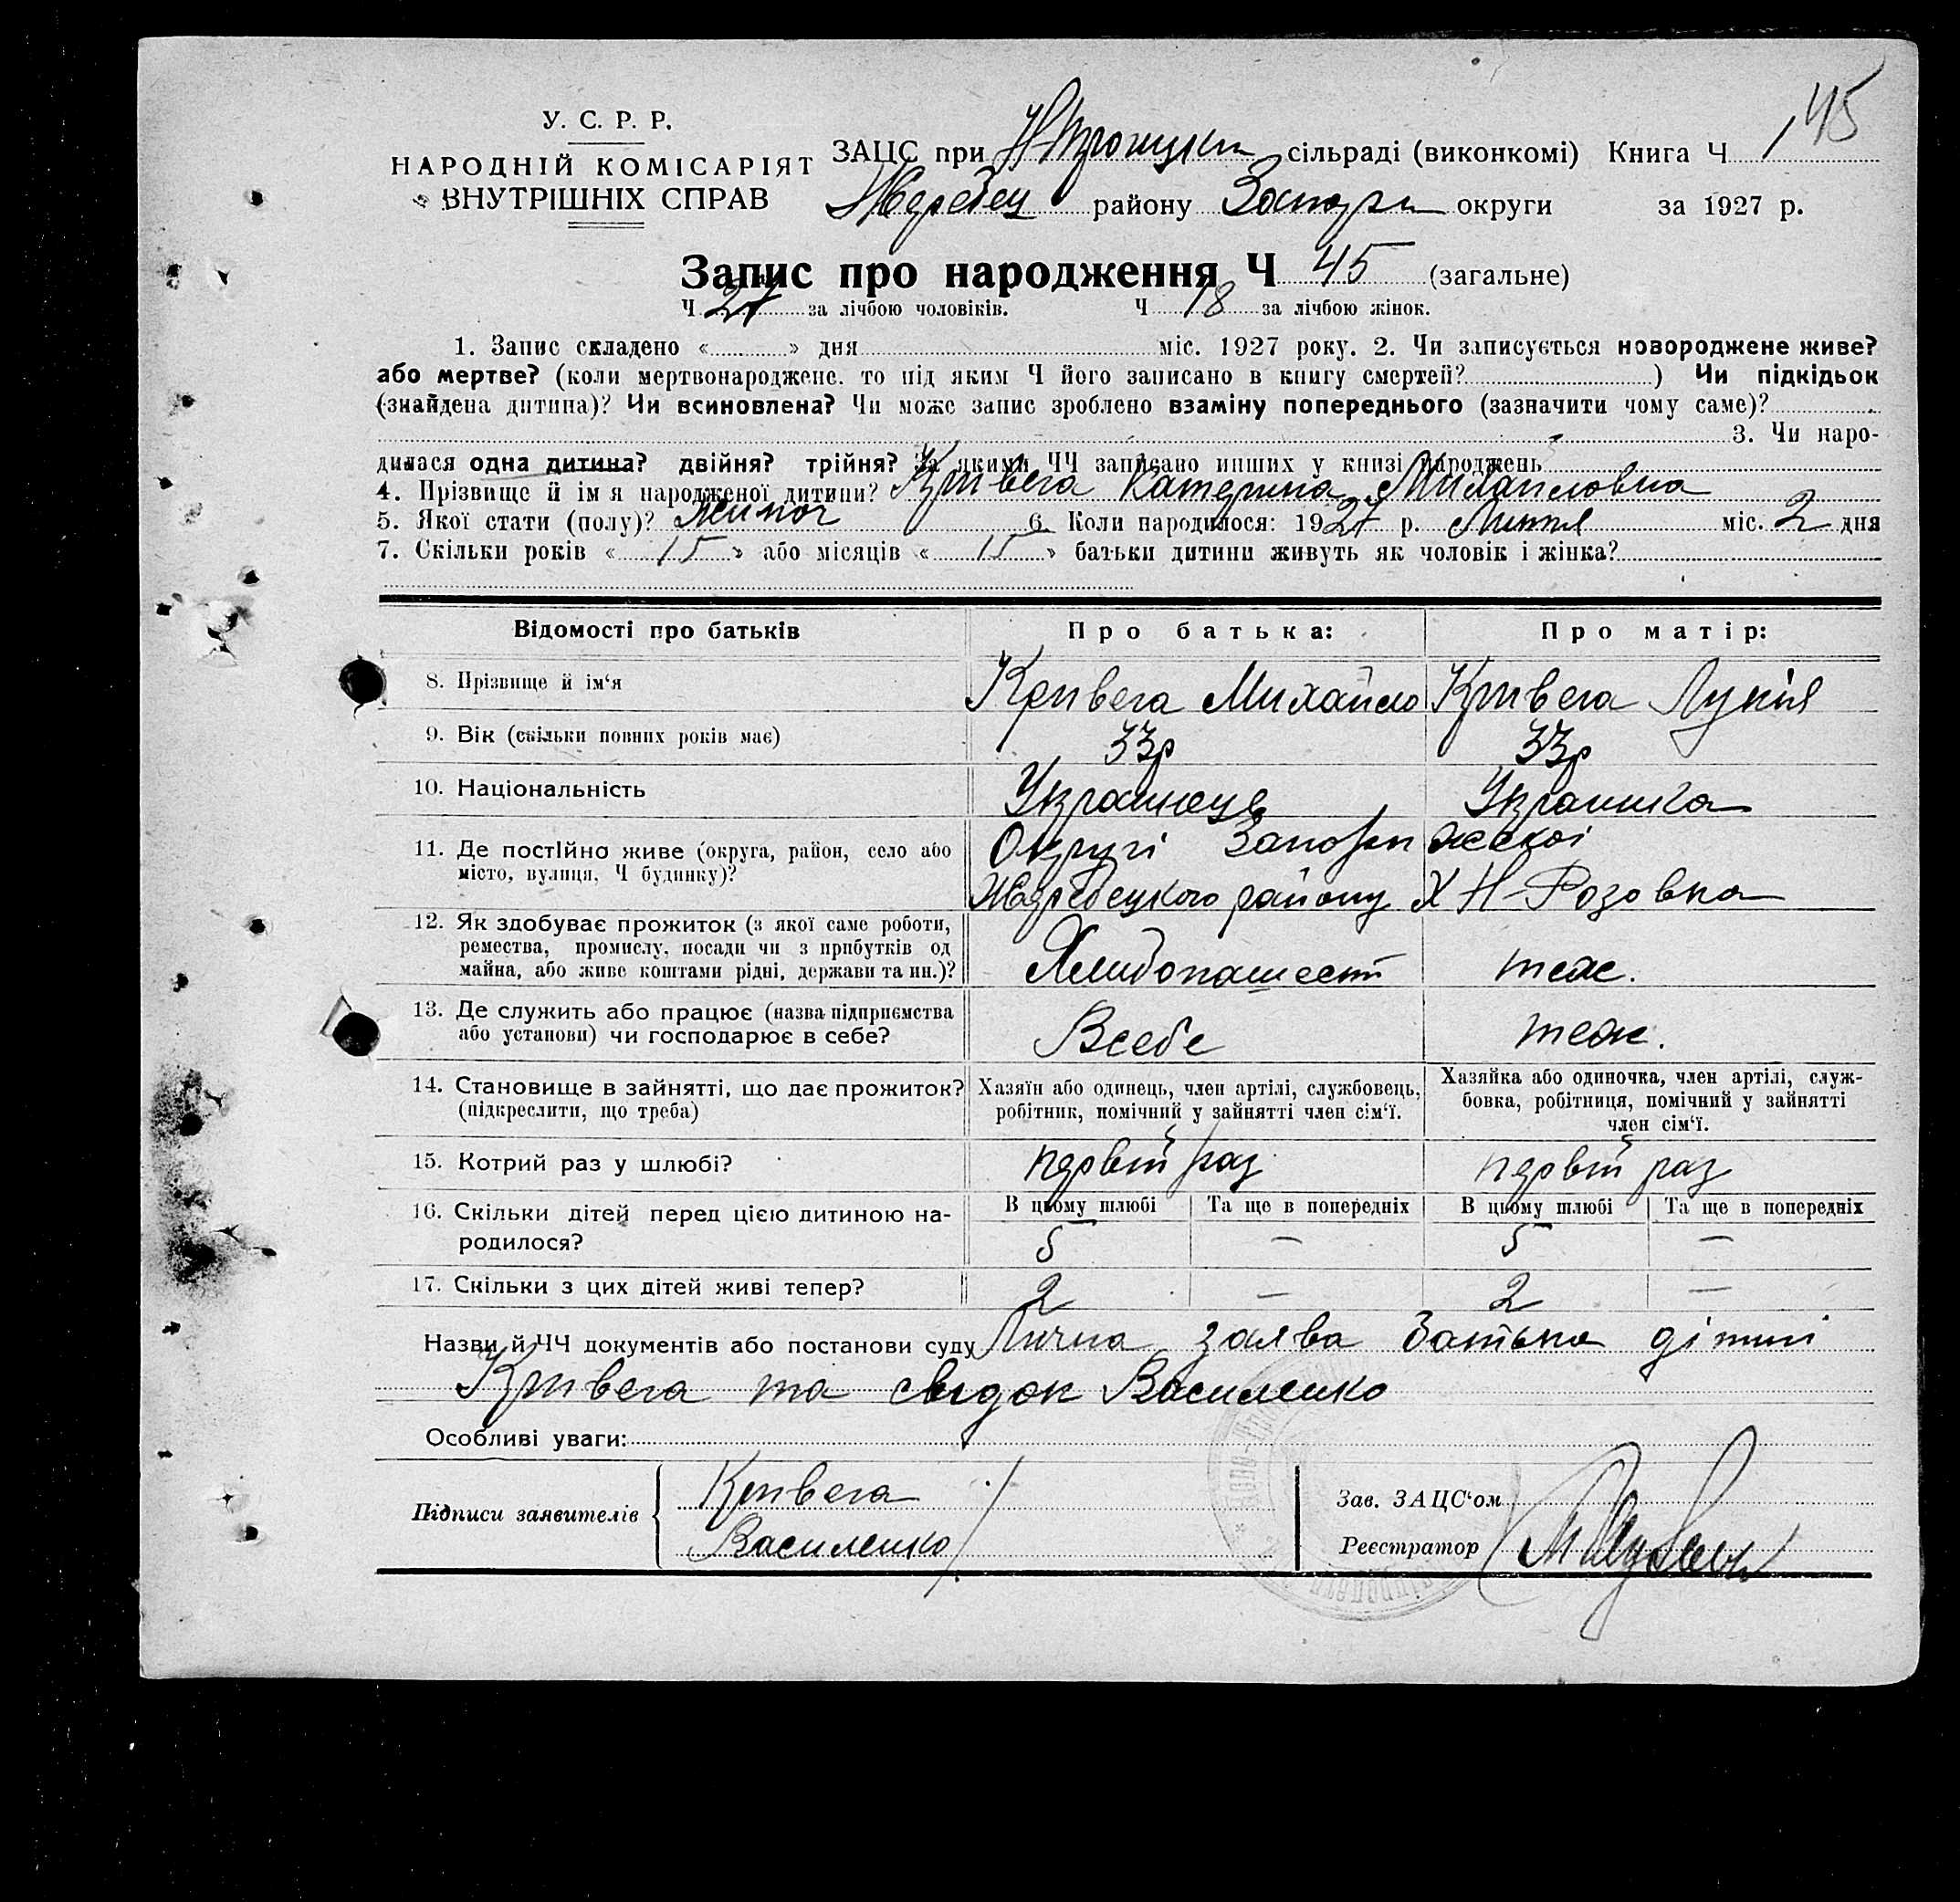 145
У. С. Р. Р.
НАРОДНІЙ КОМІСАРІЯТ
ВНУТРІШНІХ СПРАВ
ЗАЦС при сільраді (виконкомі) Книга Ч 1
Жеребец району Запоріз округи за 1927 р.
Запис про народження Ч 45 (загальне)
Ч 27 за лічбою чоловіків. Ч 18 за лічбою жінок.
1. Запис складено « » дня міс. 1927 року. 2. Чи записується новороджене живе?
або мертве? (коли мертвонароджене. то під яким Ч його записано в книгу смертей? ) Чи підкідьок
(знайдена дитина)? Чи всиновлена? Чи може запис зроблено взаміну попереднього (зазначити чому саме)?
3. Чи наро-
дилася одна дитина? двійня? трійня? За якими ЧЧ записано инших у книзі народжень
4. Прізвище й ім я народженої дитини? Кривега Катерина Михайловна
5. Якої стати (полу)? жиноч 6. Коли народилося: 1927 р. Липтя міс. 2 дня
7. Скільки років « 15 » або місяців « 15 » батьки дитини живуть як чоловік і жінка?
Відомості про батьків Про батька: Про матір:
8. Прізвище й ім‘я Кривега Михайло Кривега Лукія
9. Вік (скільки повних років має) 33р 33р
10. Національність Украинець Украинка
11. Де постійно живе (округа, район, село або Округі Запоріжжскоі
місто, вулиця, Ч будинку)? Жеребецького району Х Н-Розовка
12. Як здобуває прожиток (з якої саме роботи,
ремества, промислу, посади чи з прибутків од
майна, або живе коштами рідні, держави та ин.)? Хлибопашест теж.
13. Де служить або працює (назва підприємства
або установи) чи господарює в себе? Всебе теж.
14. Становище в зайнятті, що дає прожиток? Хазяїн або одинець, член артілі, службовець, Хазяйка або одиночка, член артілі, служ-
(підкреслити, що треба) робітник, помічний у зайнятті член сім‘ї. бовка, робітниця, помічний у зайнятті
член сім‘ї.
15. Котрий раз у шлюбі? первій раз первій раз
16. Скільки дітей перед цією дитиною на- В цьому шлюбі Та ще в попередніх В цьому шлюбі Та ще в попередніх
родилося? 5 — 5 —
17. Скільки з цих дітей живі тепер? 2 — 2 —
Назви й ЧЧ документів або постанови суду Лична заява батька дітині
Кривега та свидок Василенко
Особливі уваги:
Підписи заявителів Кривега Зав. ЗАЦС‘ом
Василенко Реєстратор